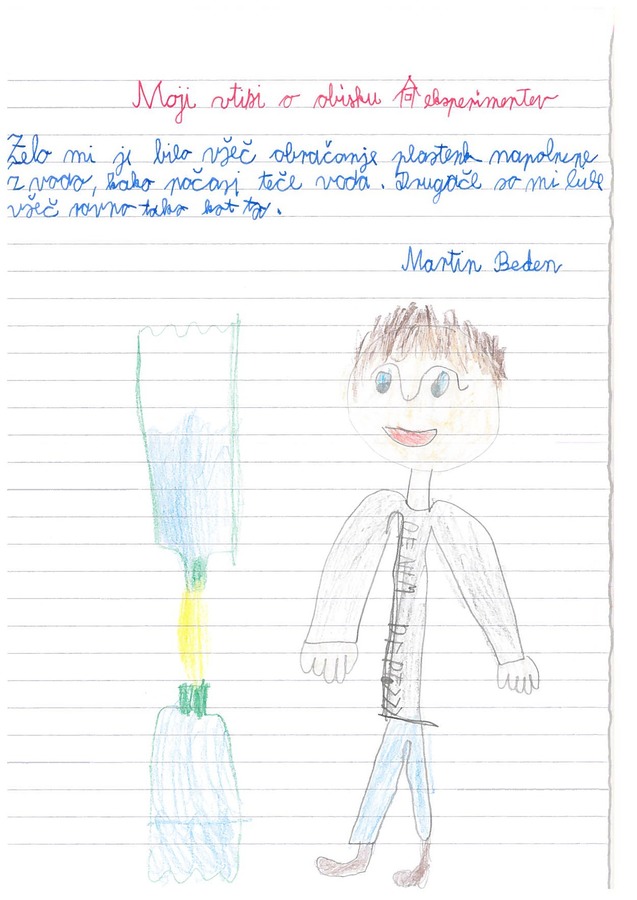 Moji vtisi o obisku eksperimentov
Zelo mi je bilo všeč obračanje plastenk napolnene
z vodo, kako počasi teče voda. Drugače so mi bile
všeč ravno tako kot to.
Martin Beden
DENIM DEPE